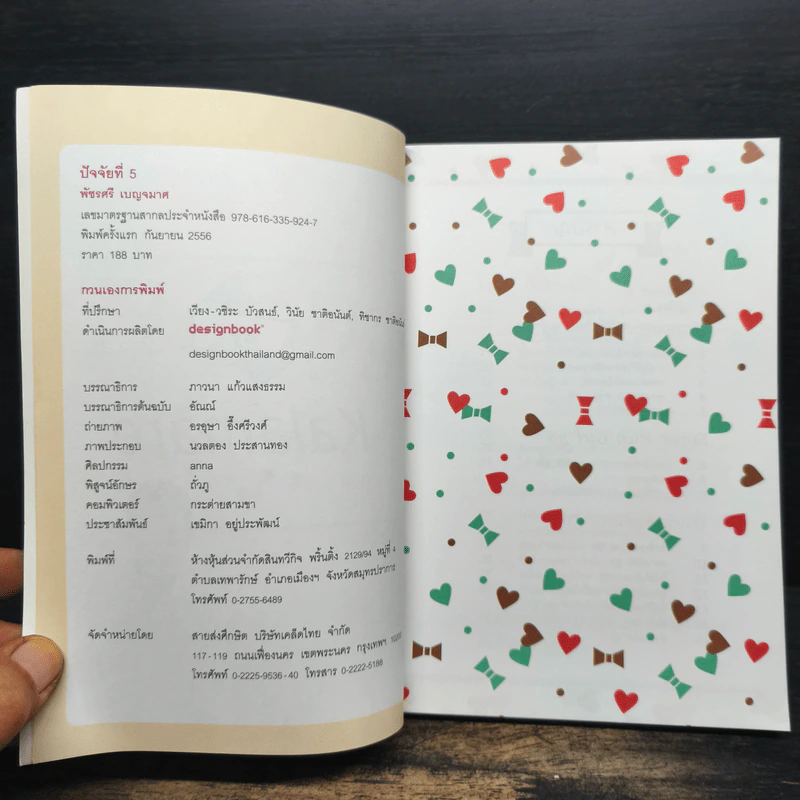 ปัจจัยที่ 5
พัชรศรี เบญจมาศ
เลขมาตรฐานสากลประจำหนังสือ 978-616-335-924-7
พิมพ์ครั้งแรก กันยายน 2556
ราคา 188 บาท
กวนเองการพิมพ์
ที่ปรึกษา เวียง-วชิระ บัวสนธ์, วินัย ชาติอนันต์, ทิชากร ชาติอนันต์
ดำเนินการผลิตโดย designbook
designbookthailand@gmail.com
บรรณาธิการ ภาวนา แก้วแสงธรรม
บรรณาธิการต้นฉบับ อัณณ์
ถ่ายภาพ อรอุษา อึ๊งศรีวงศ์
ภาพประกอบ นวลตอง ประสานทอง
ศิลปกรรม anna
พิสูจน์อักษร ถั่วภู
คอมพิวเตอร์ กระต่ายสามขา
ประชาสัมพันธ์ เขมิกา อยู่ประพัฒน์
พิมพ์ที่ ห้างหุ้นส่วนจำกัดสินทวีกิจ พริ้นติ้ง 2129/94 หมู่ที่ 4
ตำบลเทพารักษ์ อำเภอเมืองฯ จังหวัดสมุทรปราการ
โทรศัพท์ 0-2755-6489
จัดจำหน่ายโดย สายส่งศึกษิต บริษัทเคล็ดไทย จำกัด
117-119 ถนนเฟื่องนคร เขตพระนคร กรุงเทพฯ 10200
โทรศัพท์ 0-2225-9536-40 โทรสาร 0-2222-5188